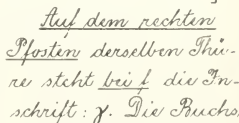 Auf dem rechten
Pfosten derselben Thü-
re steht bei f die In-
schrift: γ. Die Buchs